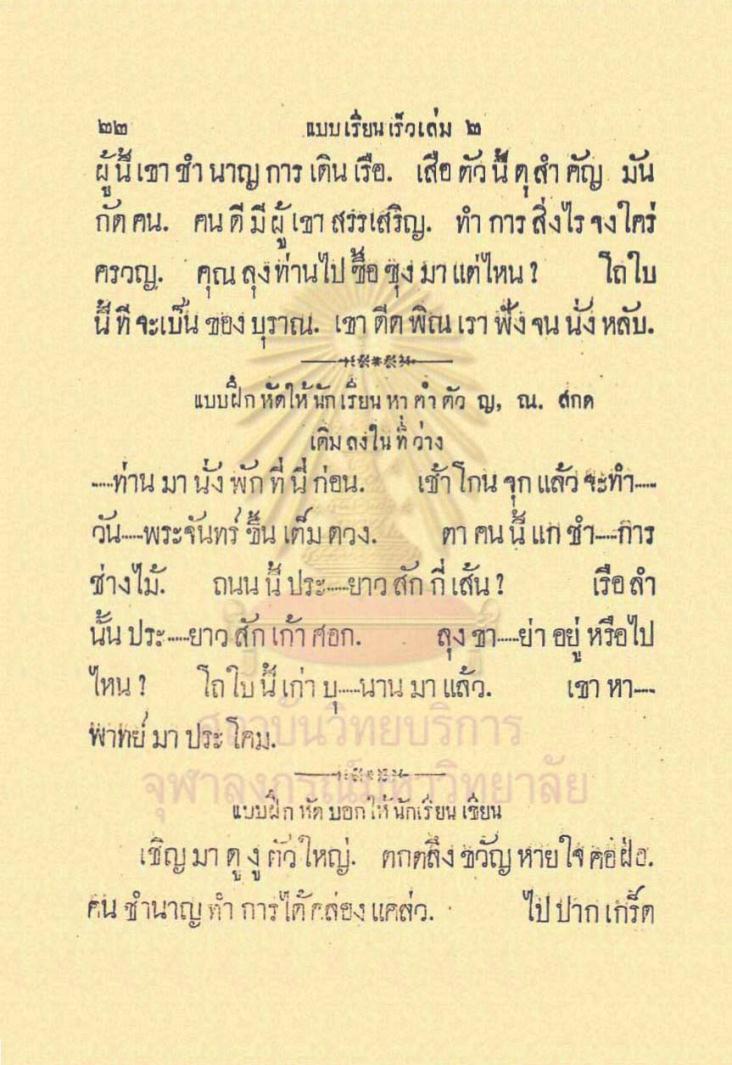 ๒๒ แบบเรียนเร็วเล่ม ๒
ผู้นี้ เขา ชำ นาญ การ เดิน เรือ. เสือ ตัว นี้ ดุ สำ คัญ มัน
กัด คน. คน ดี มี ผู้ เขา สรรเสริญ. ทำ การ สิ่งไร จงใคร่
ครวญ. คุณ ลุง ท่านไป ซื้อ ซุง มา แต่ไหน? โถใบ
นี้ ที จะเป็น ของ บุราณ. เขา ดีด พิณ เรา ฟัง จน นั่ง หลับ.
แบบฝึก หัดให้ นัก เรียน หา คำ ตัว ญ, ณ. สกด
เติม ลงใน ที่ ว่าง
----ท่าน มา นั่ง พัก ที่ นี่ ก่อน. เช้า โกน จุก แล้ว จะทำ----
วัน----พระจันทร์ ขึ้น เต็ม ดวง. ตา คน นี้ แก ชำ----การ
ช่างไม้. ถนน นี้ ประ----ยาว สัก กี่ เส้น? เรือ ลำ
นั้น ประ----ยาว สัก เก้า ศอก. ลุง ขา----ย่า อยู่ หรือไป
ไหน? โถใบ นี้ เก่า บุ----นาน มา แล้ว. เขา หา----
พาทย์ มา ประ โคม.
แบบฝึก หัด บอกให้ นักเรียน เขียน
เชิญ มา ดู งู ตัวใหญ่. ตกตลึง ขวัญ หาย ใจ คอฝ่อ.
คน ชำนาญ ทำ การได้ คล่อง แคล่ว. ไป ปาก เกร็ด
สถาบันวิทยบริการ
จุฬาลงกรณ์มหาวิทยาลัย